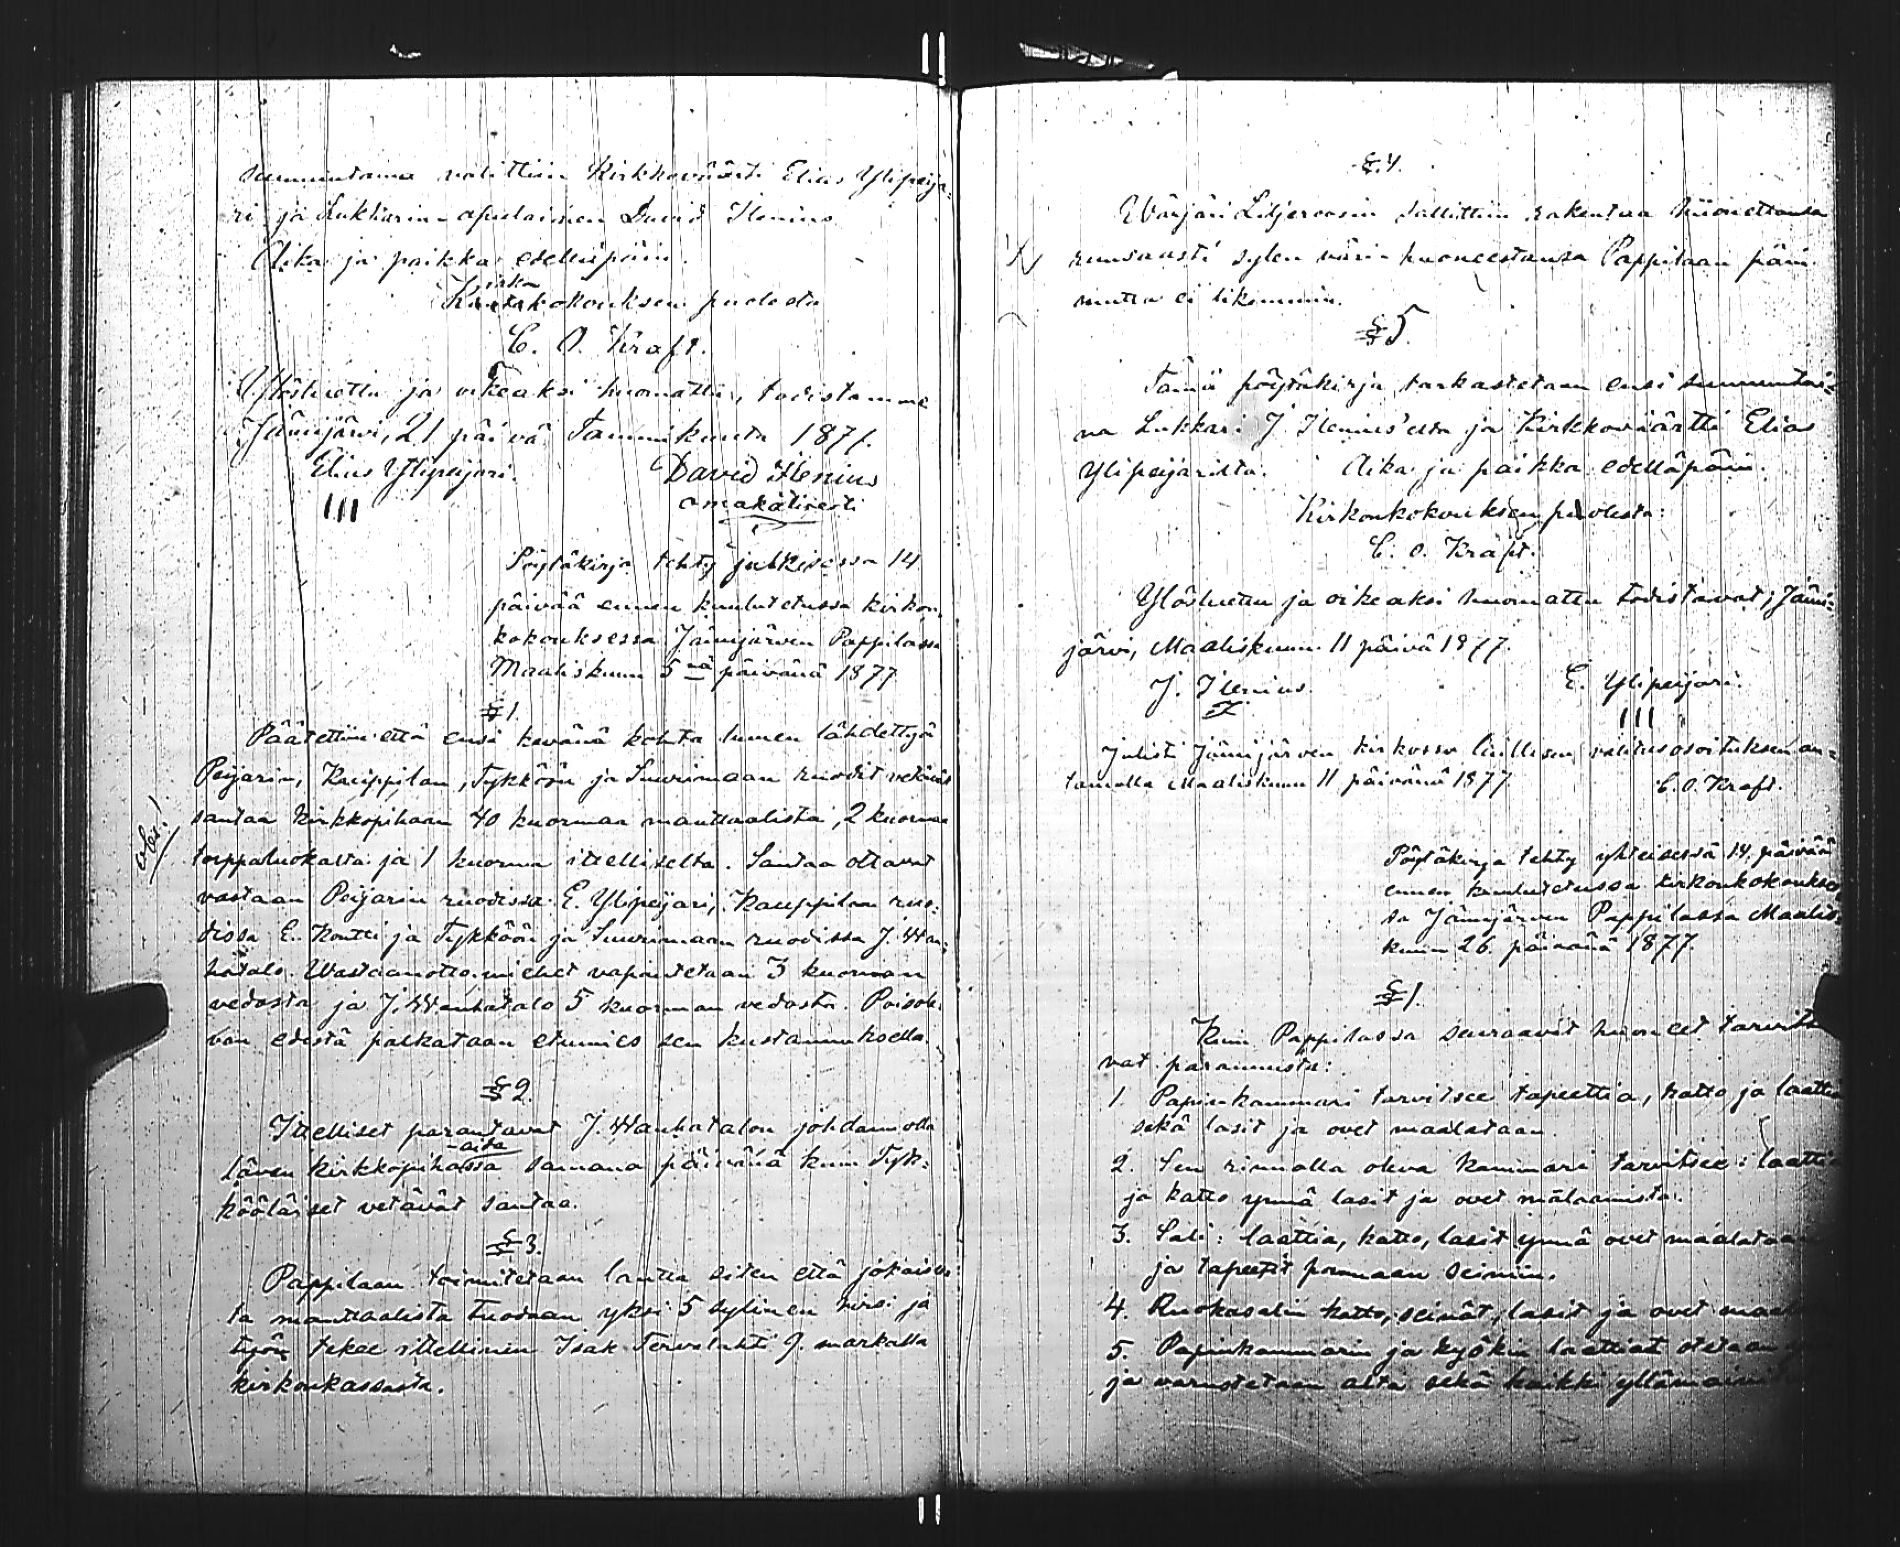 sunnuntaina valittiin Kirkkoväärti Elias Ylipeija-
ri ja Lukkarin-apulainen David Ilenius.
Aika ja paikka edelläpäin.
Kirkonkokouksen puolesta
C. O. Kraft.
Ylösluettu ja oikeaksi huomattu, todistamme
Jämijärvi, 21 päivä Tammikuuta 1877.
Elias Ylipeijari. David Ilenius
III omakätisesti
Pöytäkirja tehty julkisessa 14
päivää ennen kuulutetussa kirkon-
kokouksessa Jämijärven Pappilassa
Maaliskuun 5nä päivänä 1877
§ 1.
Päätettiin että ensi kevänä kohta lumen lähdettyä
Peijarin, Kauppilan, Tykköön ja Suurimaan ruodit vetävät
santaa Kirkkopihaan 40 kuormaa manttaalista, 2 kuormaa
torppaluokasta ja 1 kuorma itselliseltä. Santaa ottavat
vastaan Peijarin ruodissa E. Ylipeijari, Kauppilan ruo-
dissa E. Kontti ja Tykköön ja Suurimaan ruodissa J. Wan-
hatalo. Wastaanottomiehet vapautetaan 3 kuorman
vedosta ja J. Wanhatalo 5 kuorman vedosta. Poisole-
van edestä palkataan etumies sen kustannuksella.
obs!
§ 2
Itselliset parantavat J. Wanhatalon johdannolla
-aita
läven kirkkopihassa samana päivänä kuin Tyk-
kööläiset vetävät santaa.
§ 3.
Pappilaan toimitetaan lautta siten että jokaises-
ta manttaalista tuodaan yksi 5 sylinen hirsi ja
työn tekee itsellinen Isak Tervalahti 9. markalla
kirkonkassasta.
§ 4.
Wärjäri Liljeroosin sallittiin rakentaa huonettansa
runsaasti sylen värin-huoneestansa Pappilaan päin
mutta ei likemmin.
§ 5.
Tämä pöytäkirja tarkastetaan ensi sunnuntai-
na Lukkari J. Ilenius'elta ja Kirkkoväärtti Elias
Ylipeijarilta. Aika ja paikka edelläpäin.
Kirkonkokouksen puolesta:
C. O. Kraft.
Ylösluettu ja oikeaksi huomattu todistavat; Jämi-
järvi, Maaliskuun 11 päivä 1877.
J. Ilenius. E. Ylipeijari.
III
Julisti Jämijärven kirkossa laillisen valitusosoituksen an-
tamalla Maaliskuun 11 päivänä 1877 C. O. Kraft.
Pöytäkirja tehty yhteisessä 14. päivää
ennen kuulutetussa kirkonkokoukses-
sa Jämijärven Pappilassa Maalis-
kuun 26. päivänä 1877.
§ 1.
Kuin Pappilassa seuraavat huoneet tarvitse
vat parannusta:
1. Papinkammari tarvitsee tapeettia, katto ja laattia
sekä lasit ja ovet maalataan.
2. Sen rinnalla oleva kammari tarvitsee: laattia
ja katto ynnä lasit ja ovet mälaamista.
3. Sali: laattia, katto, lasit ynnä ovet maalataan
ja tapeetit pannaan seiniin.
4. Ruokasalin katto, seinät, lasit ja ovet
5. Papinkammarin ja kyökin laattiat otetaan
ja varustetaan alta sekä kaikki